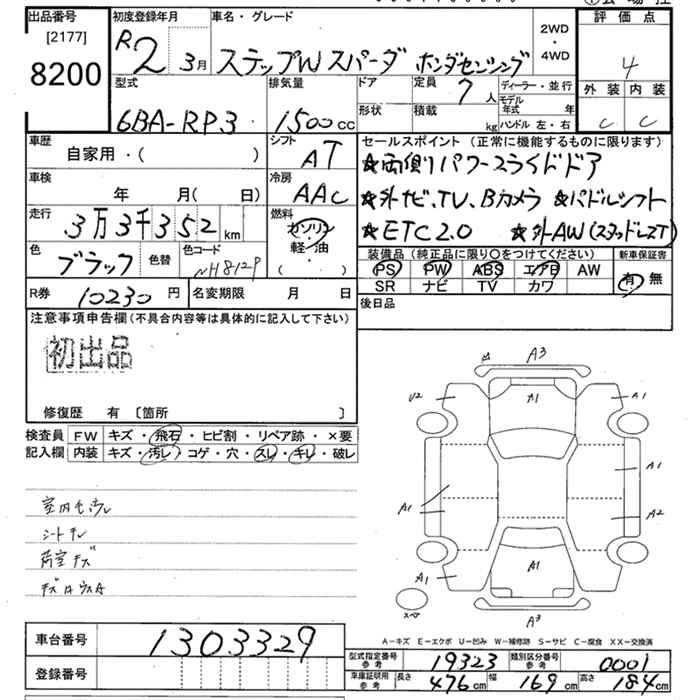 出品番号 初度登録年月 車名・グレード 2WD・4WD 評価点
[2177]
8200 R2 3月 ステップW スパーダ ホンダセンシング 4
型式 排気量 ドア 定員 7人 ディーラー・並行 外装 内装
6BA-RP3 1500cc 形状 積載 kg モデル年式 年 C C
ハンドル 左・右
車歴 自家用・( ) シフト AT セールスポイント(正常に機能するものに限ります)
★両側パワースライドドア
車検 年 月( 日) 冷房 AAC ★外ナビ、TV、Bカメラ ★パドルシフト
走行 3万3千352km 燃料 ガソリン ★ETC2.0 ★外AW(スタッドレスT)
軽・油
( )
色 ブラック 色替 色コード NH812P 装備品(純正品に限り〇をつけてください) 新車保証書
PS PW ABS エアB AW 有・無
SR ナビ TV カワ
R券 10230円 名変期限 月 日 後日品
注意事項申告欄(不具合内容等は具体的に記入して下さい)
初出品
修復歴 有 〔箇所 〕
検査員 FW キズ・飛石・ヒビ割・リペア跡・×要
記入欄 内装 キズ・汚レ・コゲ・穴・スレ・キレ・破レ
シートキレ
荷室キズ
A3
U2 A1 A1
A1
A1 A2
A1 A1
スペア A3
A-キズ E-エクボ U-凹み W-補修跡 S-サビ C-腐食 XX-交換済
車台番号 1303329
登録番号
型式指定番号 参考 19323 類別区分番号 参考 0001
車庫証明用 参考 長さ 476cm 幅 169cm 高さ 184cm